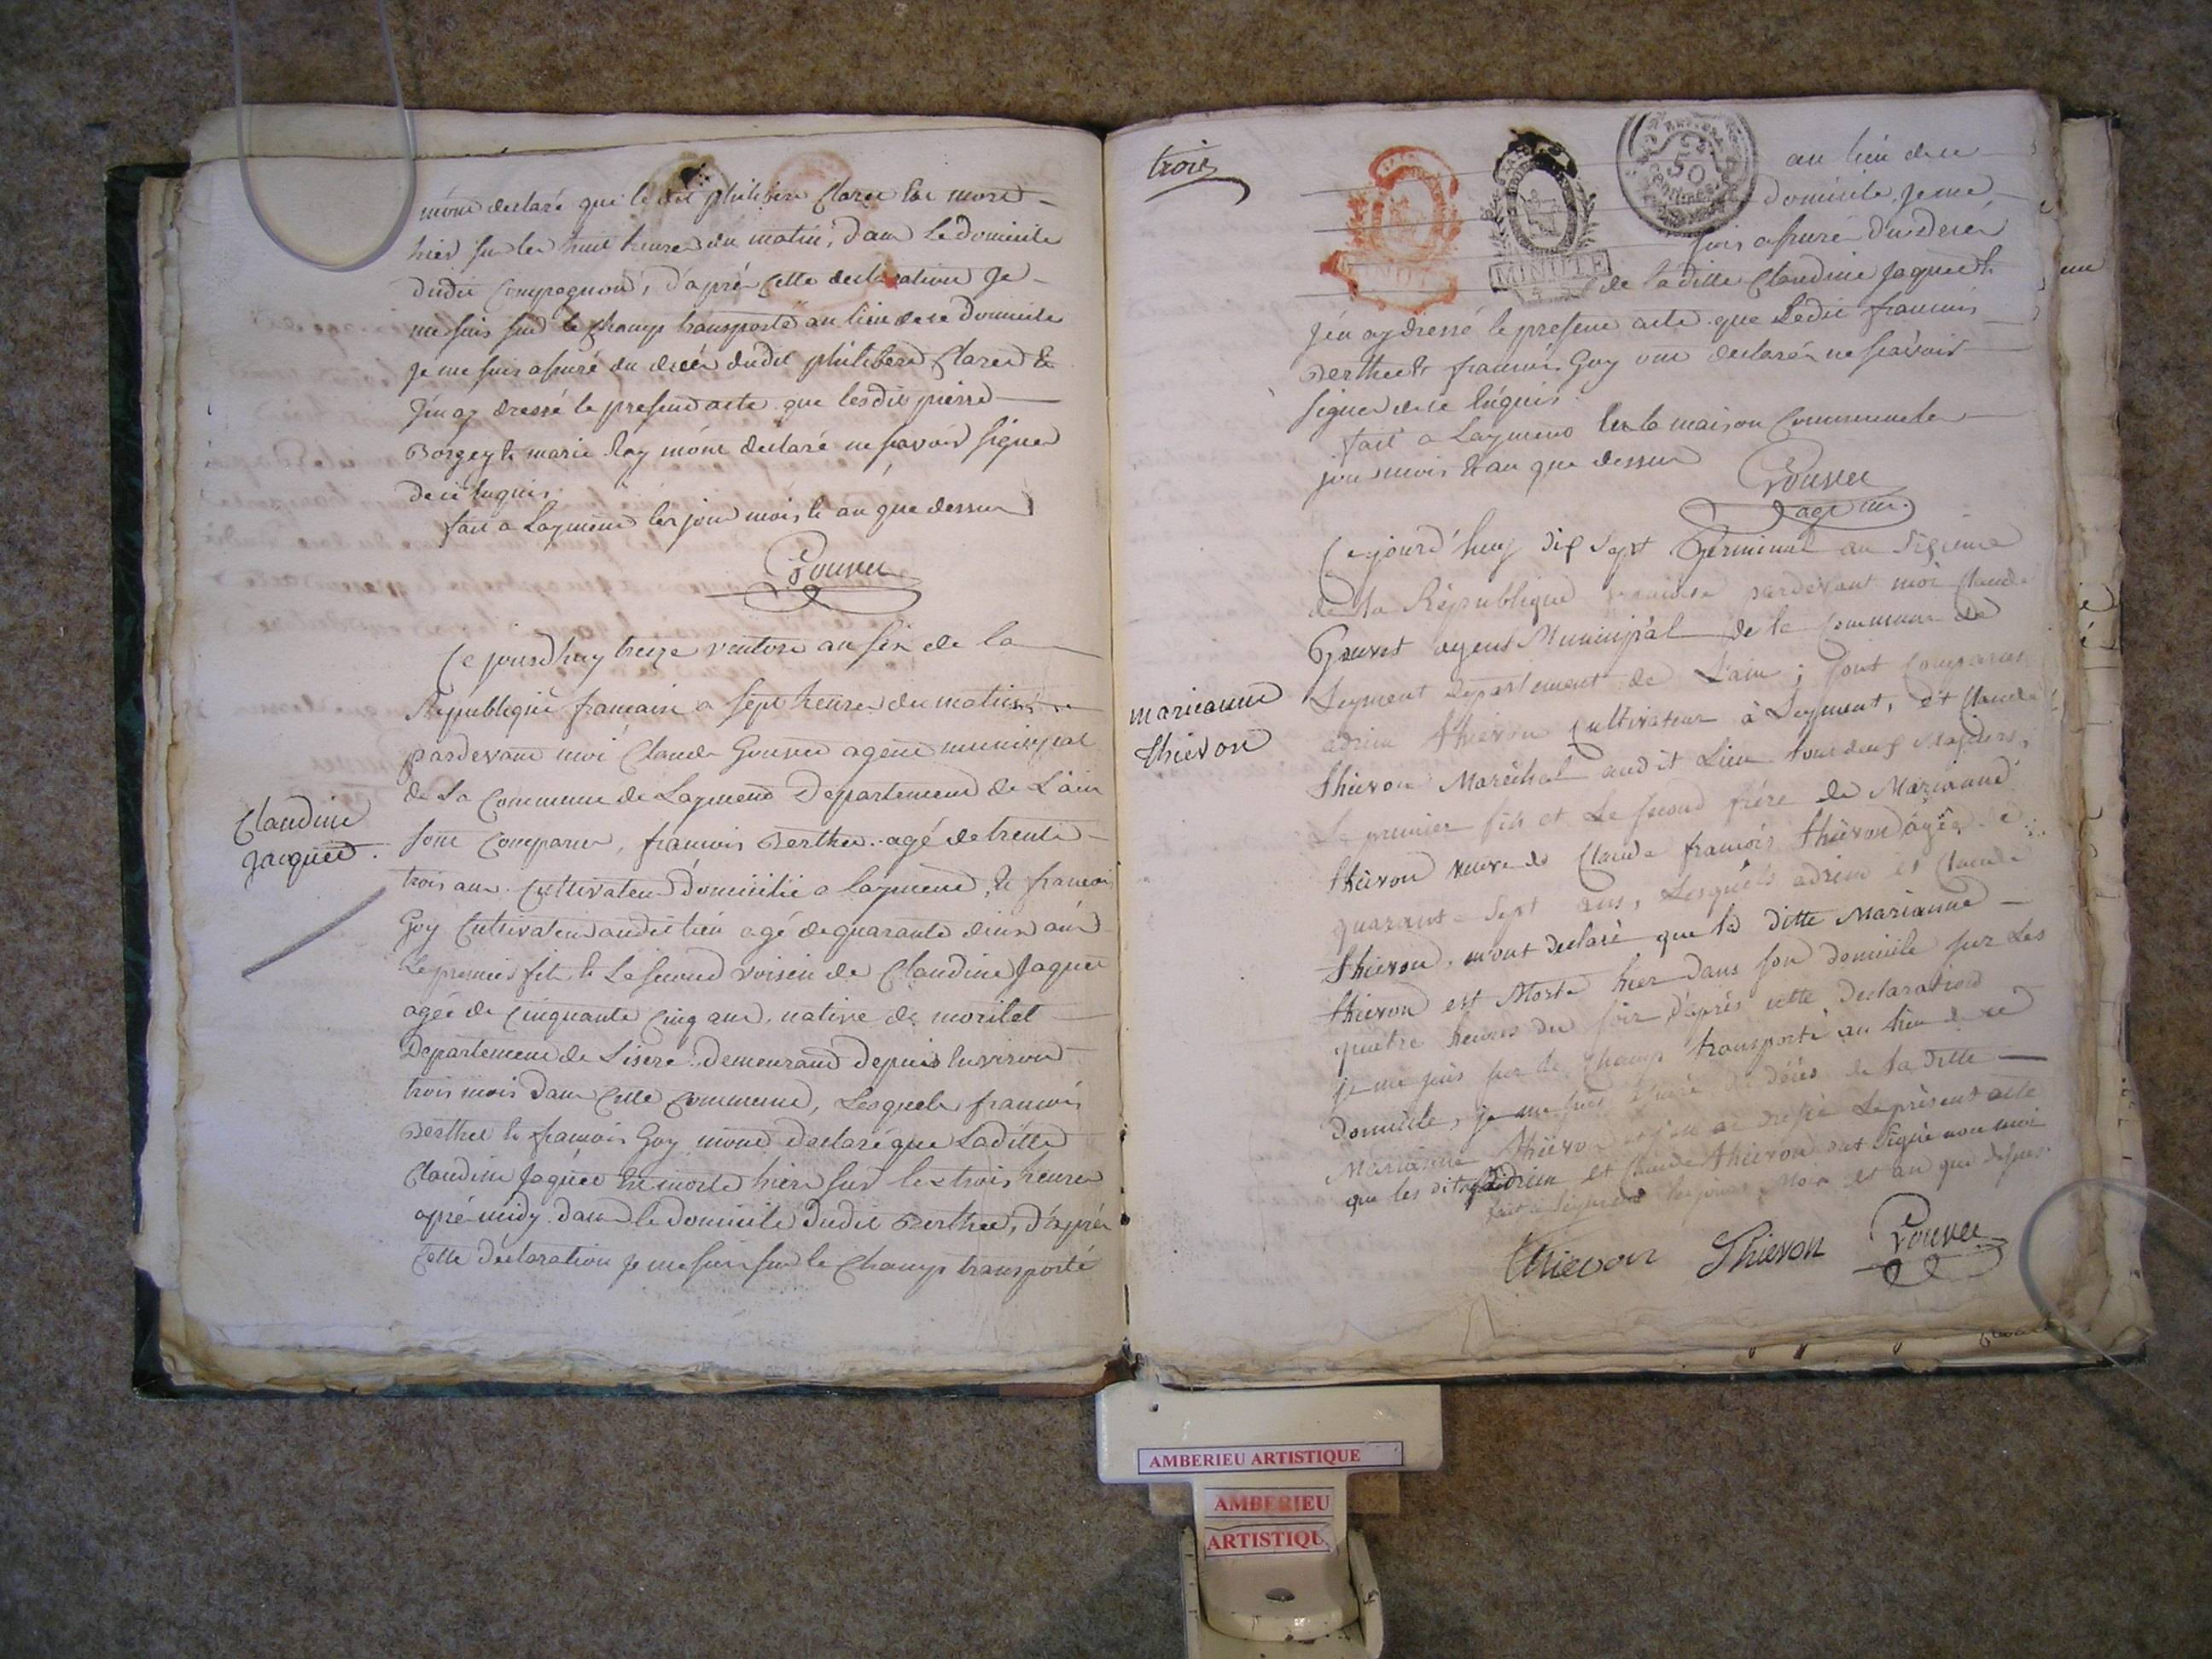 mont declaré que le dit philibert Claret Est mort
hier sur les huit heures du matin, dans le domicile
dudit Compagnon, d'après cette declaration Je
me suis sur le champ transporté au lieu de ce domicile
Je me suis assuré du decés dudit philibert Claret Et
J'en ay dressé le present acte que lesdit pierre
Borgey Et marie Ray mont declaré ne scavoir signer
de ce Enquis
fait a Layment les jour mois Et an que dessus
Gouvet
Ce jourdhuy treize ventose an six de la
République francaise a sept heures du matin
pardevant moi Claude Gouvet agent municipal
de La Commune de Layment Departement de L'ain
sont Comparus, francois Berthet agé de trente
trois ans Cultivateur domicilié a layment, Et francois
Goy Cultivateur audit lieu agé de quarante deux ans
Le premier fils Et Le second voisin de Claudine Jaquet
agée de Cinquante Cinq ans, native de morilet
Departement de Lisere demeurant depuis Environ
trois mois dans Cette Commune, Lesquels francois
Berthet Et francois Goy mont declaré que Laditte
Claudine Jaquet Est morte hier sur les trois heures
après midy dans le domicile dudit Berthet, d'après
Cette declaration Je me suis sur le Champ transporté
Claudine
Jacquet
trois
MINUTE
50
centimes
au lieu de ce
domicile, Je me
suis assuré du Deces
de laditte Claudine Jaquet Et
J'en ay dressé le present acte que Ledit francois
Berthet Et francois Goy ont declarés ne scavoir
signer de ce Enquis
fait a Layment En la maison Commune les
jour mois Et an que dessus
Gouvet
agt ml.
Ce jourd'huy dix sept Germinal an sixieme
de la République francaise pardevant moi Claude
Gouvet agent Municipal de la Commune de
Leyment département de L'ain ; sont Comparus
adrien thievon Cultivateur à Leyment, et Claude
thievon Maréchal audit Lieu tous deux majeurs,
Le premier fils et Le second frére de Marianne
thievon veuve de Claude francois thievon agée de
quarante sept ans, Lesquels adrien et Claude
thievon, m'ont declaré que la ditte Marianne
thievon est Morte hier dans son domicile sur Les
quatre heures du soir, d'après cette declaration
je me suis sur le champ transporté au lieu de ce
domicile, je me suis assuré du décés de la ditte
Marianne thievon et j'en ai dressé Le présent acte
que les dits adrien et Claude thievon ont signé avec moi
fait a Leyment les jour, Mois et an que dessus
thievon Thievon Gouvet
marieanne
thievon
AMBERIEU ARTISTIQUE
AMBERIEU
ARTISTIQU